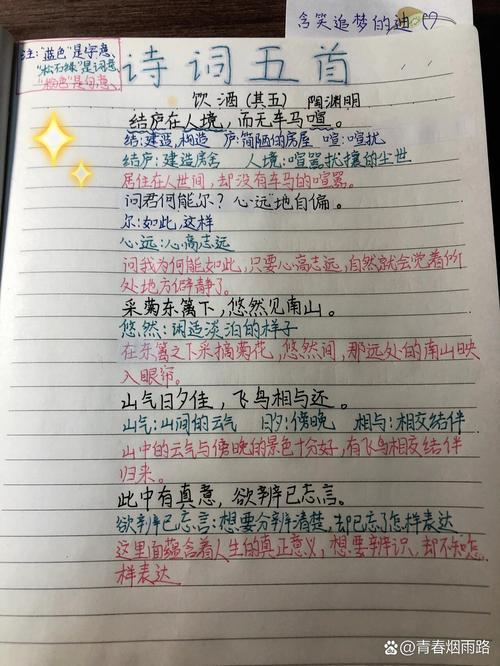 含笑追梦的迪
注:"蓝色"是字意、
"松石绿"是词意、
"粉色"是句意、
诗词五首
饮酒(其五) 陶渊明
结庐在人境,而无车马喧。
结:建造,构造 庐:简陋的房屋 喧:喧扰
结庐:建造房舍 人境:喧嚣扰攘的尘世
居住在人世间,却没有车马的喧嚣。
问君何能尔?心远地自偏。
尔:如此,这样
心远:心高志远
问我为何能如此,只要心高志远,自然就会觉着所
处地方僻静了。
采菊东篱下,悠然见南山。
悠然:闲适淡泊的样子
在东篱之下采摘菊花,悠然间,那远处的南山映
入眼帘。
山气日夕佳,飞鸟相与还。
山气:山间的云气 日夕:傍晚 相与:相交结伴
山中的云气与傍晚的景色十分好,有飞鸟相交结伴
归来。
此中有真意,欲辨已忘言。
欲辨已忘言:想要分辨清楚,却已忘了怎样表达
这里面蕴含着人生的真正意义,想要辨识,却不知怎
样表达
@青春烟雨路